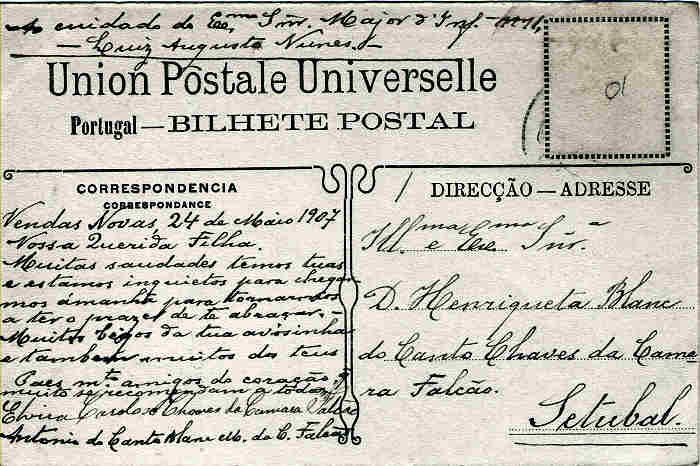 Ao cuidado do Exmo Snr. Major d'Inf.
— Luiz Augusto Nunes. —
Union Postale Universelle
Portugal — BILHETE POSTAL
10
CORRESPONDENCIA
CORRESPONDANCE
Vendas Novas, 24 de Maio 1907
Nossa Querida Filha.
Muitas saudades temos tuas
e estamos inquietos para chegar
mos ámanhã para tornarmos
a ter o prazer de te abraçar. —
Muitos beijos da tua avósinha
e tambem muitos dos teus
Paes mt. amigos do coração, q
muito se recomendam a todos
Elvira Cardoso Chaves da Camara Falcão
Antonio do Canto Blanc M. da C. Falcão
DIRECÇÃO — ADRESSE
Ill.ma e Exma Snr.a
D. Henriqueta Blanc
do Canto Chaves da Came
ra Falcão.
Setubal.